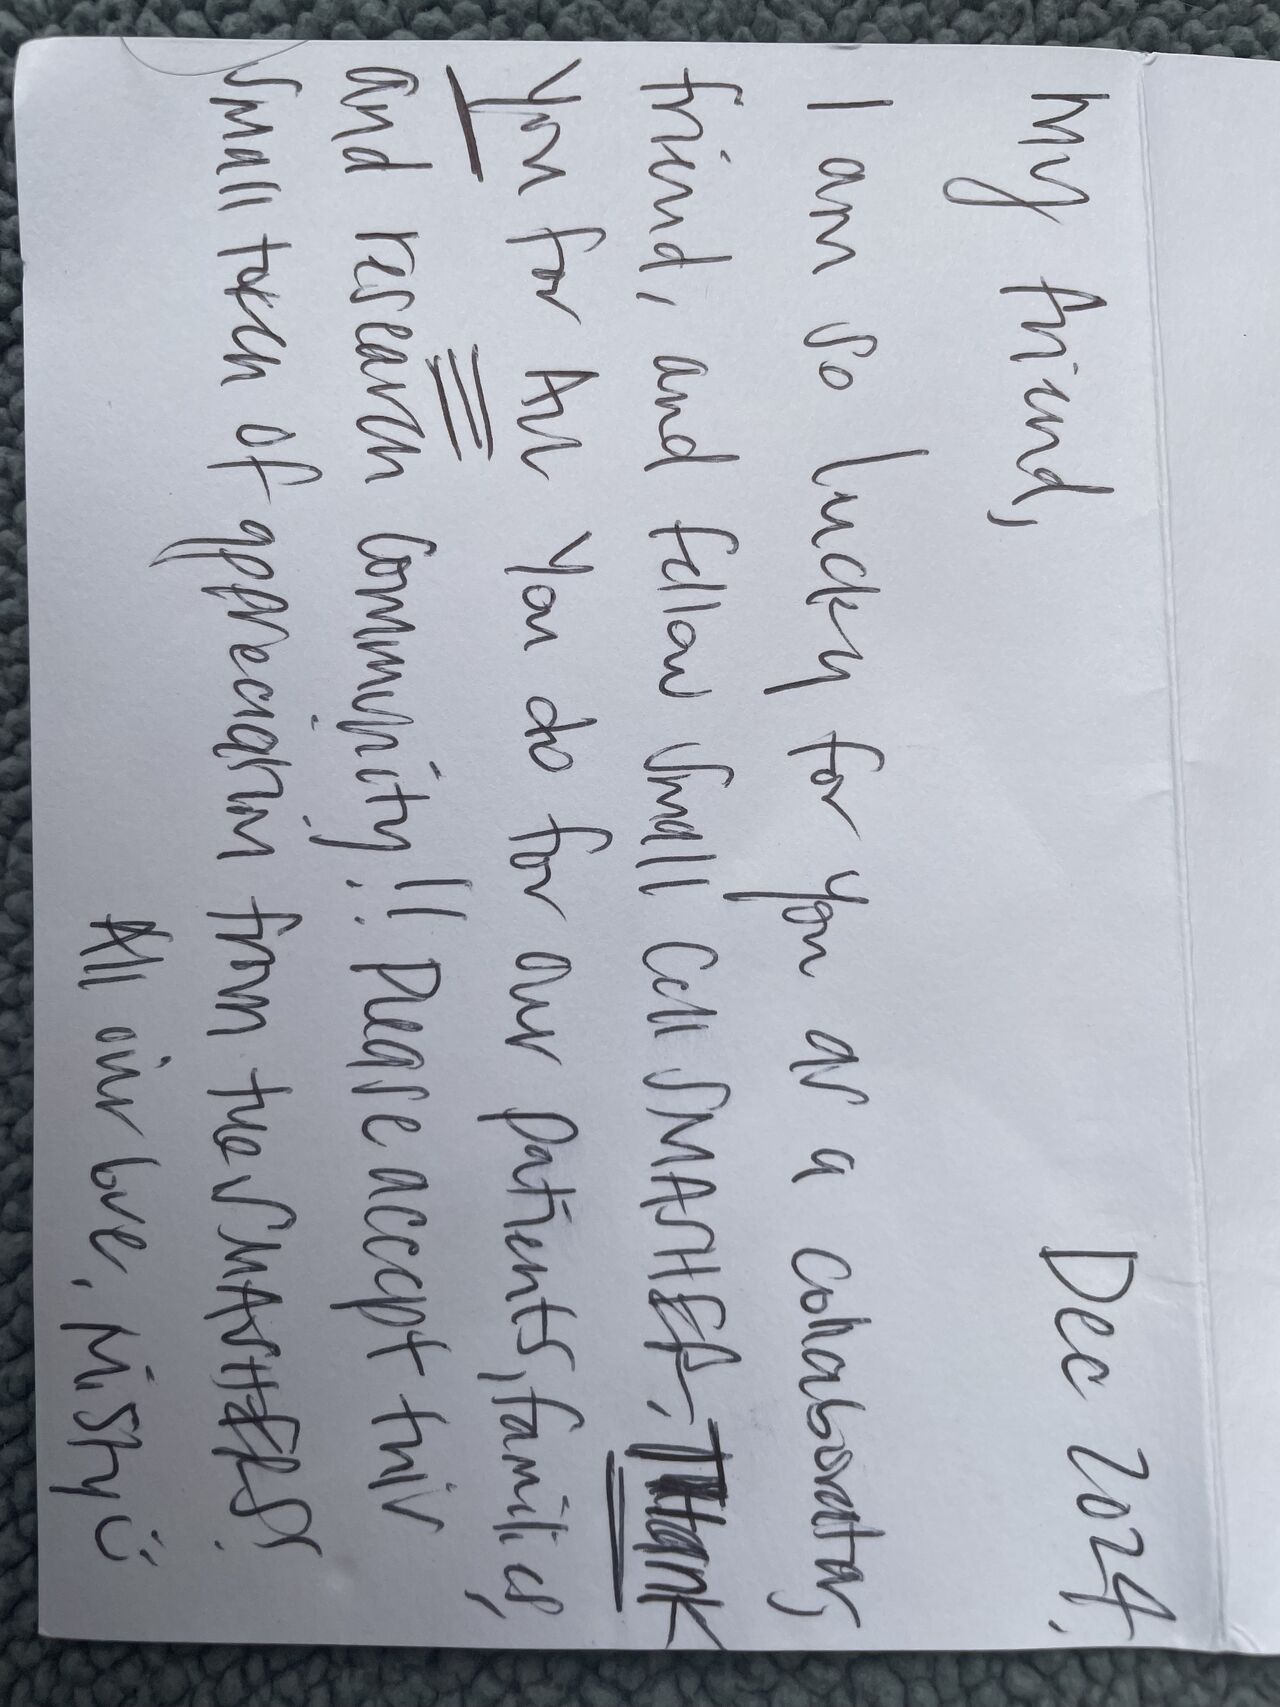 Dec 2024.
My friend,
I am so lucky for you as a collaborator,
friend, and fellow small cell SMASHER. Thank
you for All you do for our patients, families,
and research community!! Please accept this
small token of appreciation from the SMASHERS!
All our love, Misty